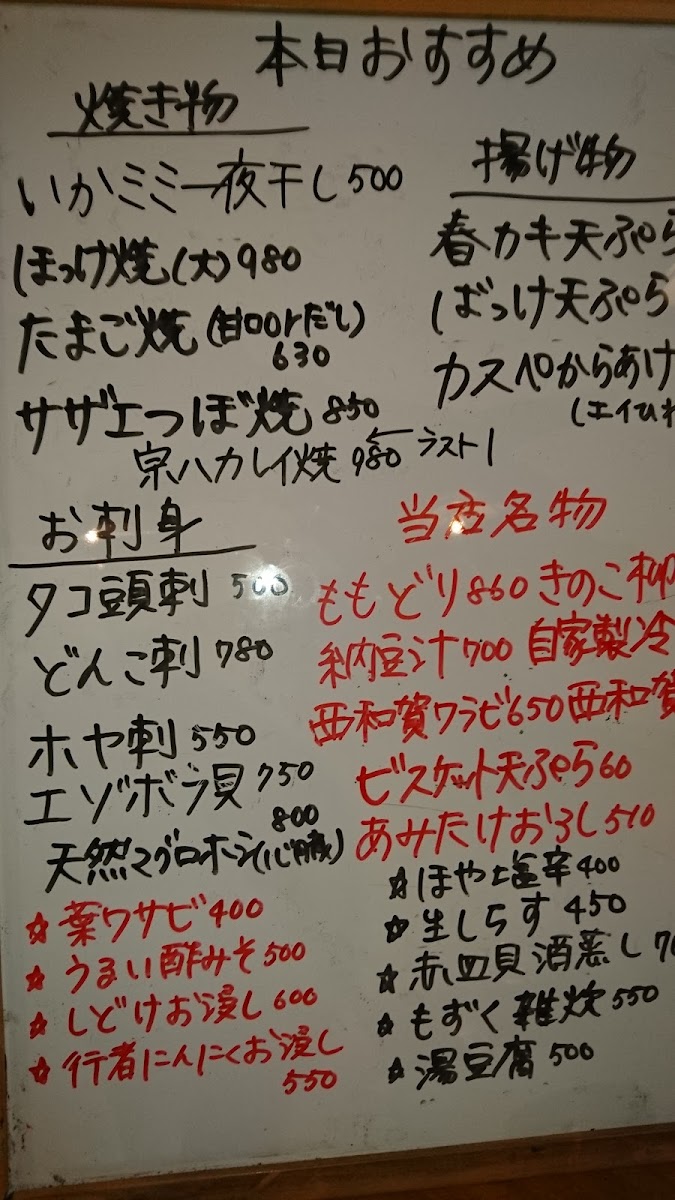 本日おすすめ
焼き物
いかミミ一夜干し500
ほっけ焼(大)980
たまご焼(甘口orだし)
630
サザエつぼ焼 850
宗ハカレイ焼 980 ← ラスト1
揚げ物
春カキ天ぷら
ばっけ天ぷら
カスペからあけ
(エイひれ
お刺身
タコ頭刺 500
どんこ刺 780
ホヤ刺 550
エゾボラ貝 750
800
天然マグロホシ(心臓)
☆葉ワサビ400
☆うるい酢みそ500
☆しどけお浸し600
☆行者にんにくお浸し
550
当店名物
ももどり860 きのこ柳
納豆汁700 自家製冷
西和賀ワラビ650 西和賀
ビスケット天ぷら60
あみたけおろし510
☆ほや塩辛400
☆生しらす450
☆赤皿貝酒蒸し
☆もずく雑炊550
☆湯豆腐500